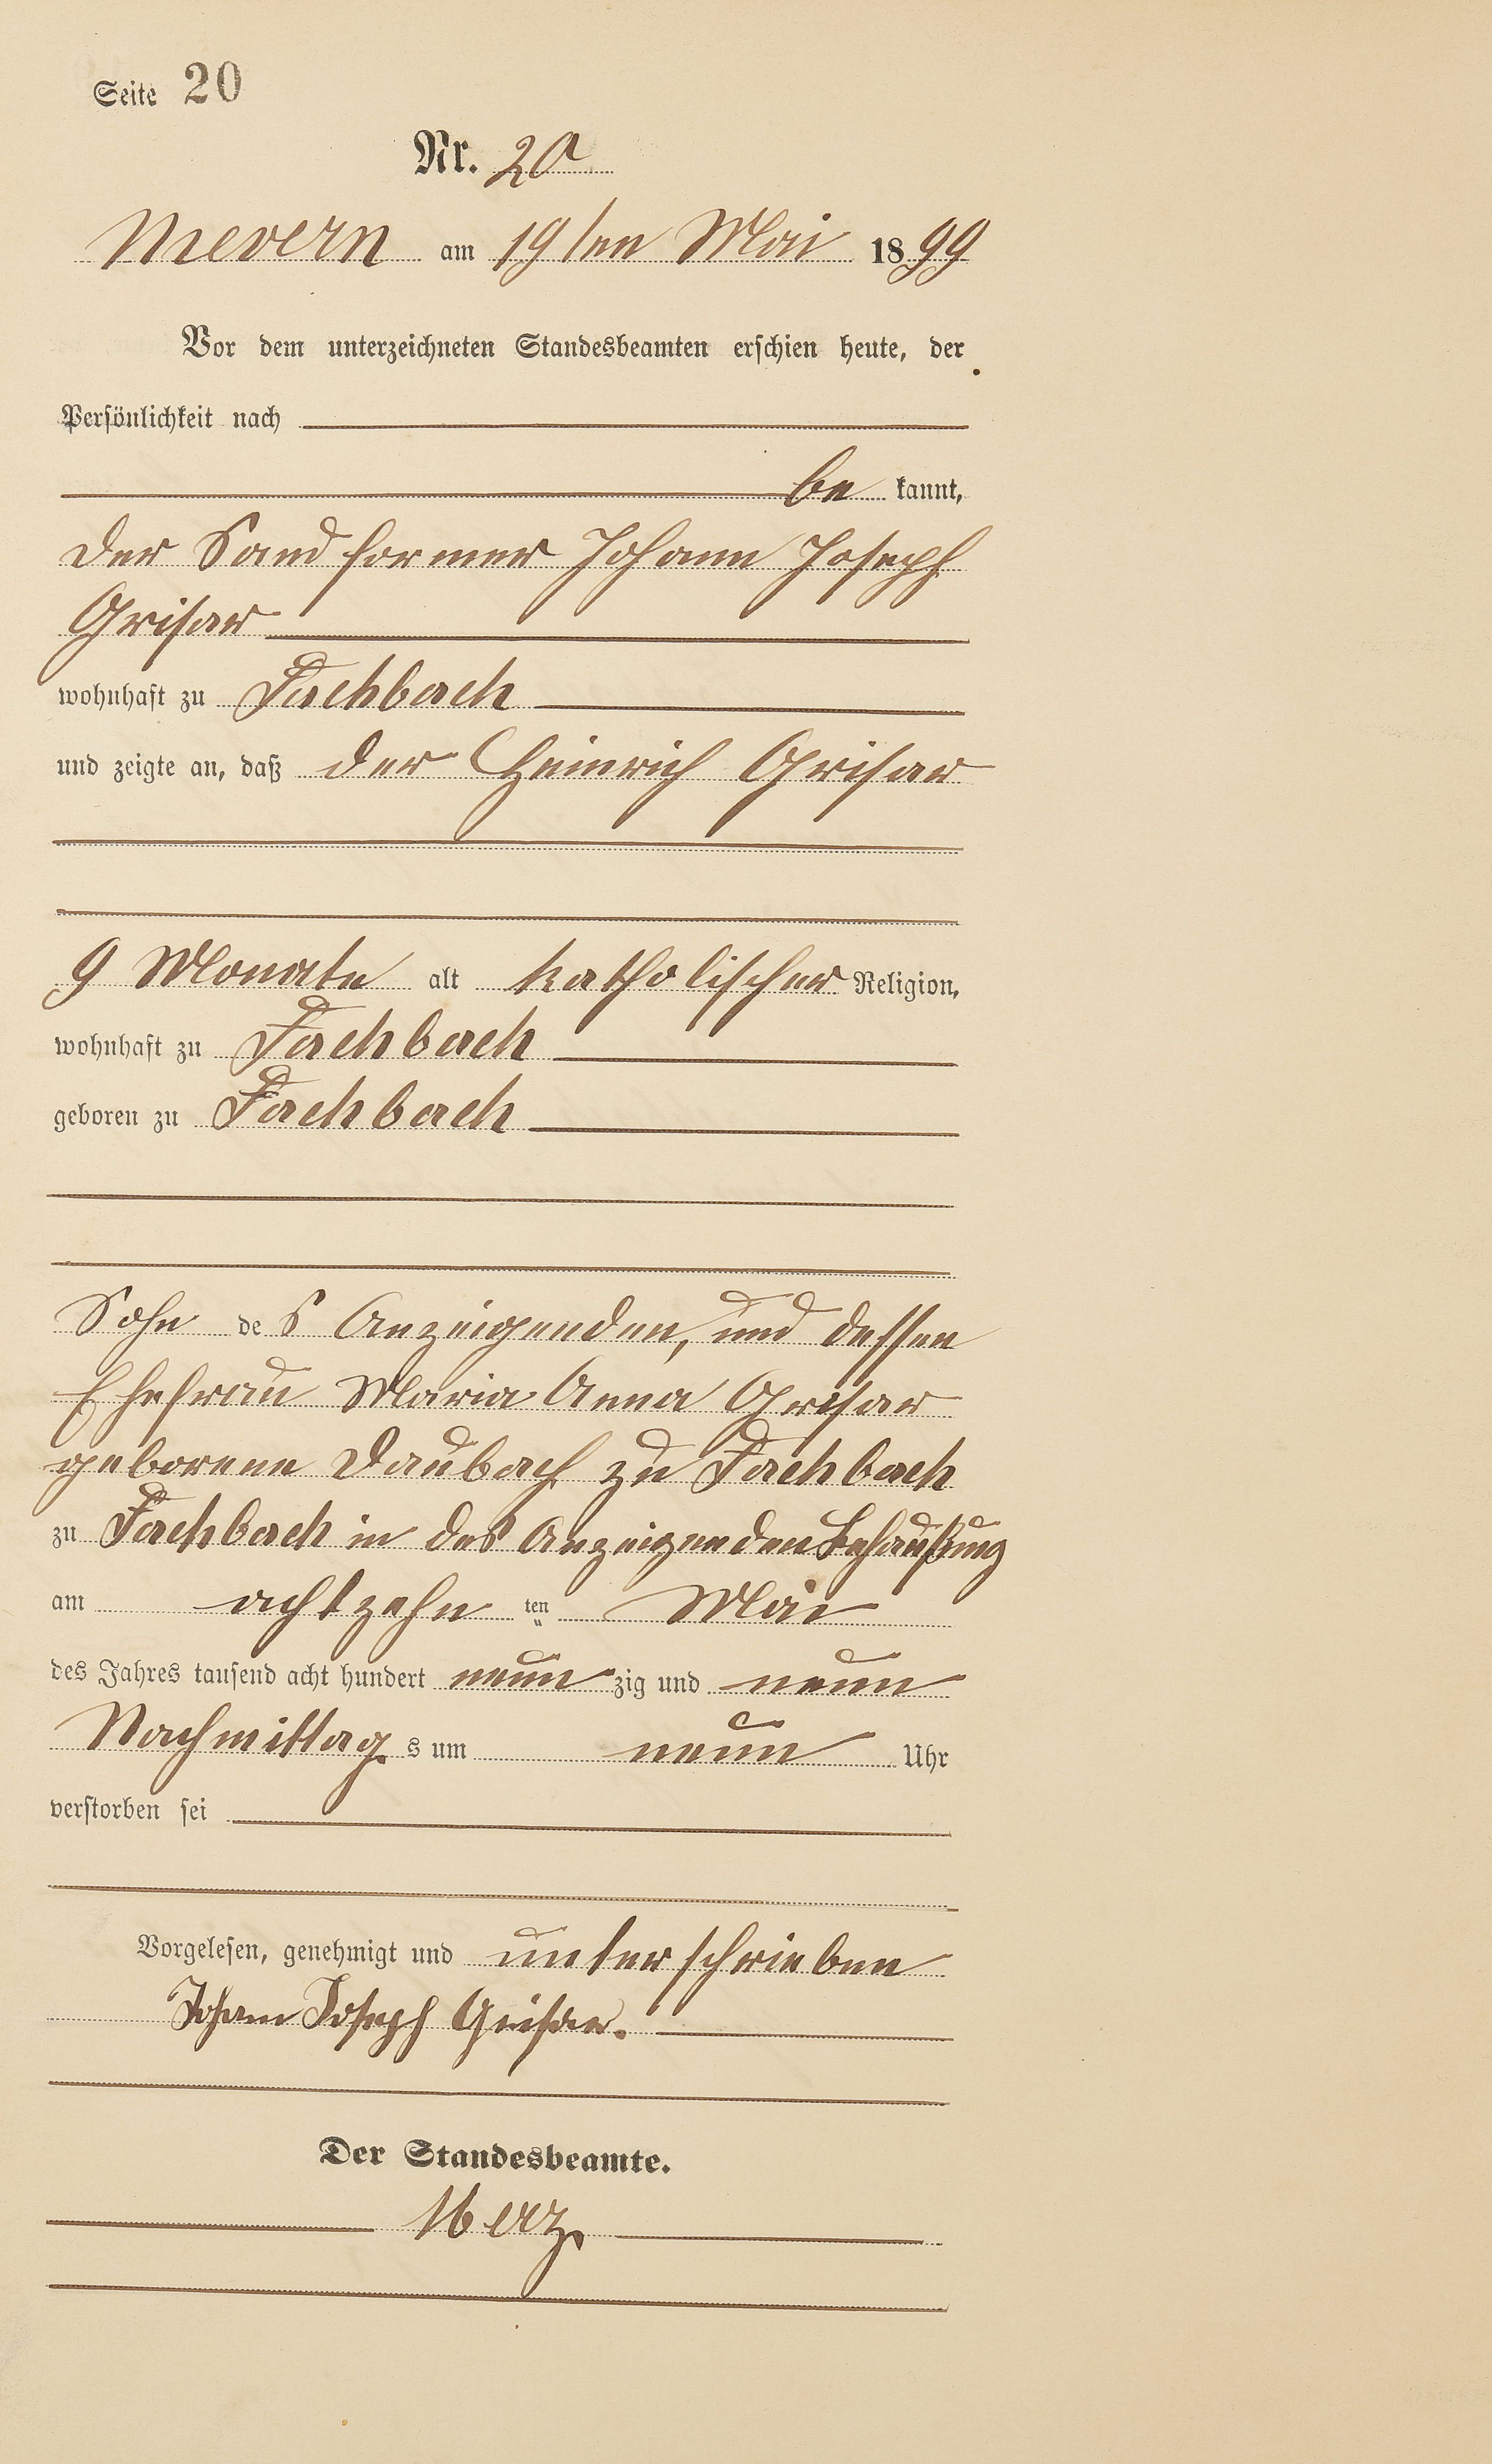 Seite 20
Nr. 20
Nievern am 19ten Mai 1899
Vor dem unterzeichneten Standesbeamten erschien heute, der
Persönlichkeit nach
be kannt,
der Sandformer Johann Joseph
Grisar
wohnhaft zu Fachbach
und zeigte an, daß der Heinrich Grisar
9 Monate alt katholischer Religion,
wohnhaft zu Fachbach
geboren zu Fachbach
Sohn des Anzeigenden, und dessen
Ehefrau Maria Anna Grisar
geborene Daubach zu Fachbach
zu Fachbach in des Anzeigenden Behaußung
am achtzehn ten Mai
des Jahres tausend acht hundert neun zig und neun
Nachmittag s um neun Uhr
verstorben sei
Vorgelesen, genehmigt und unterschrieben
Johann Joseph Grisar.
Der Standesbeamte.